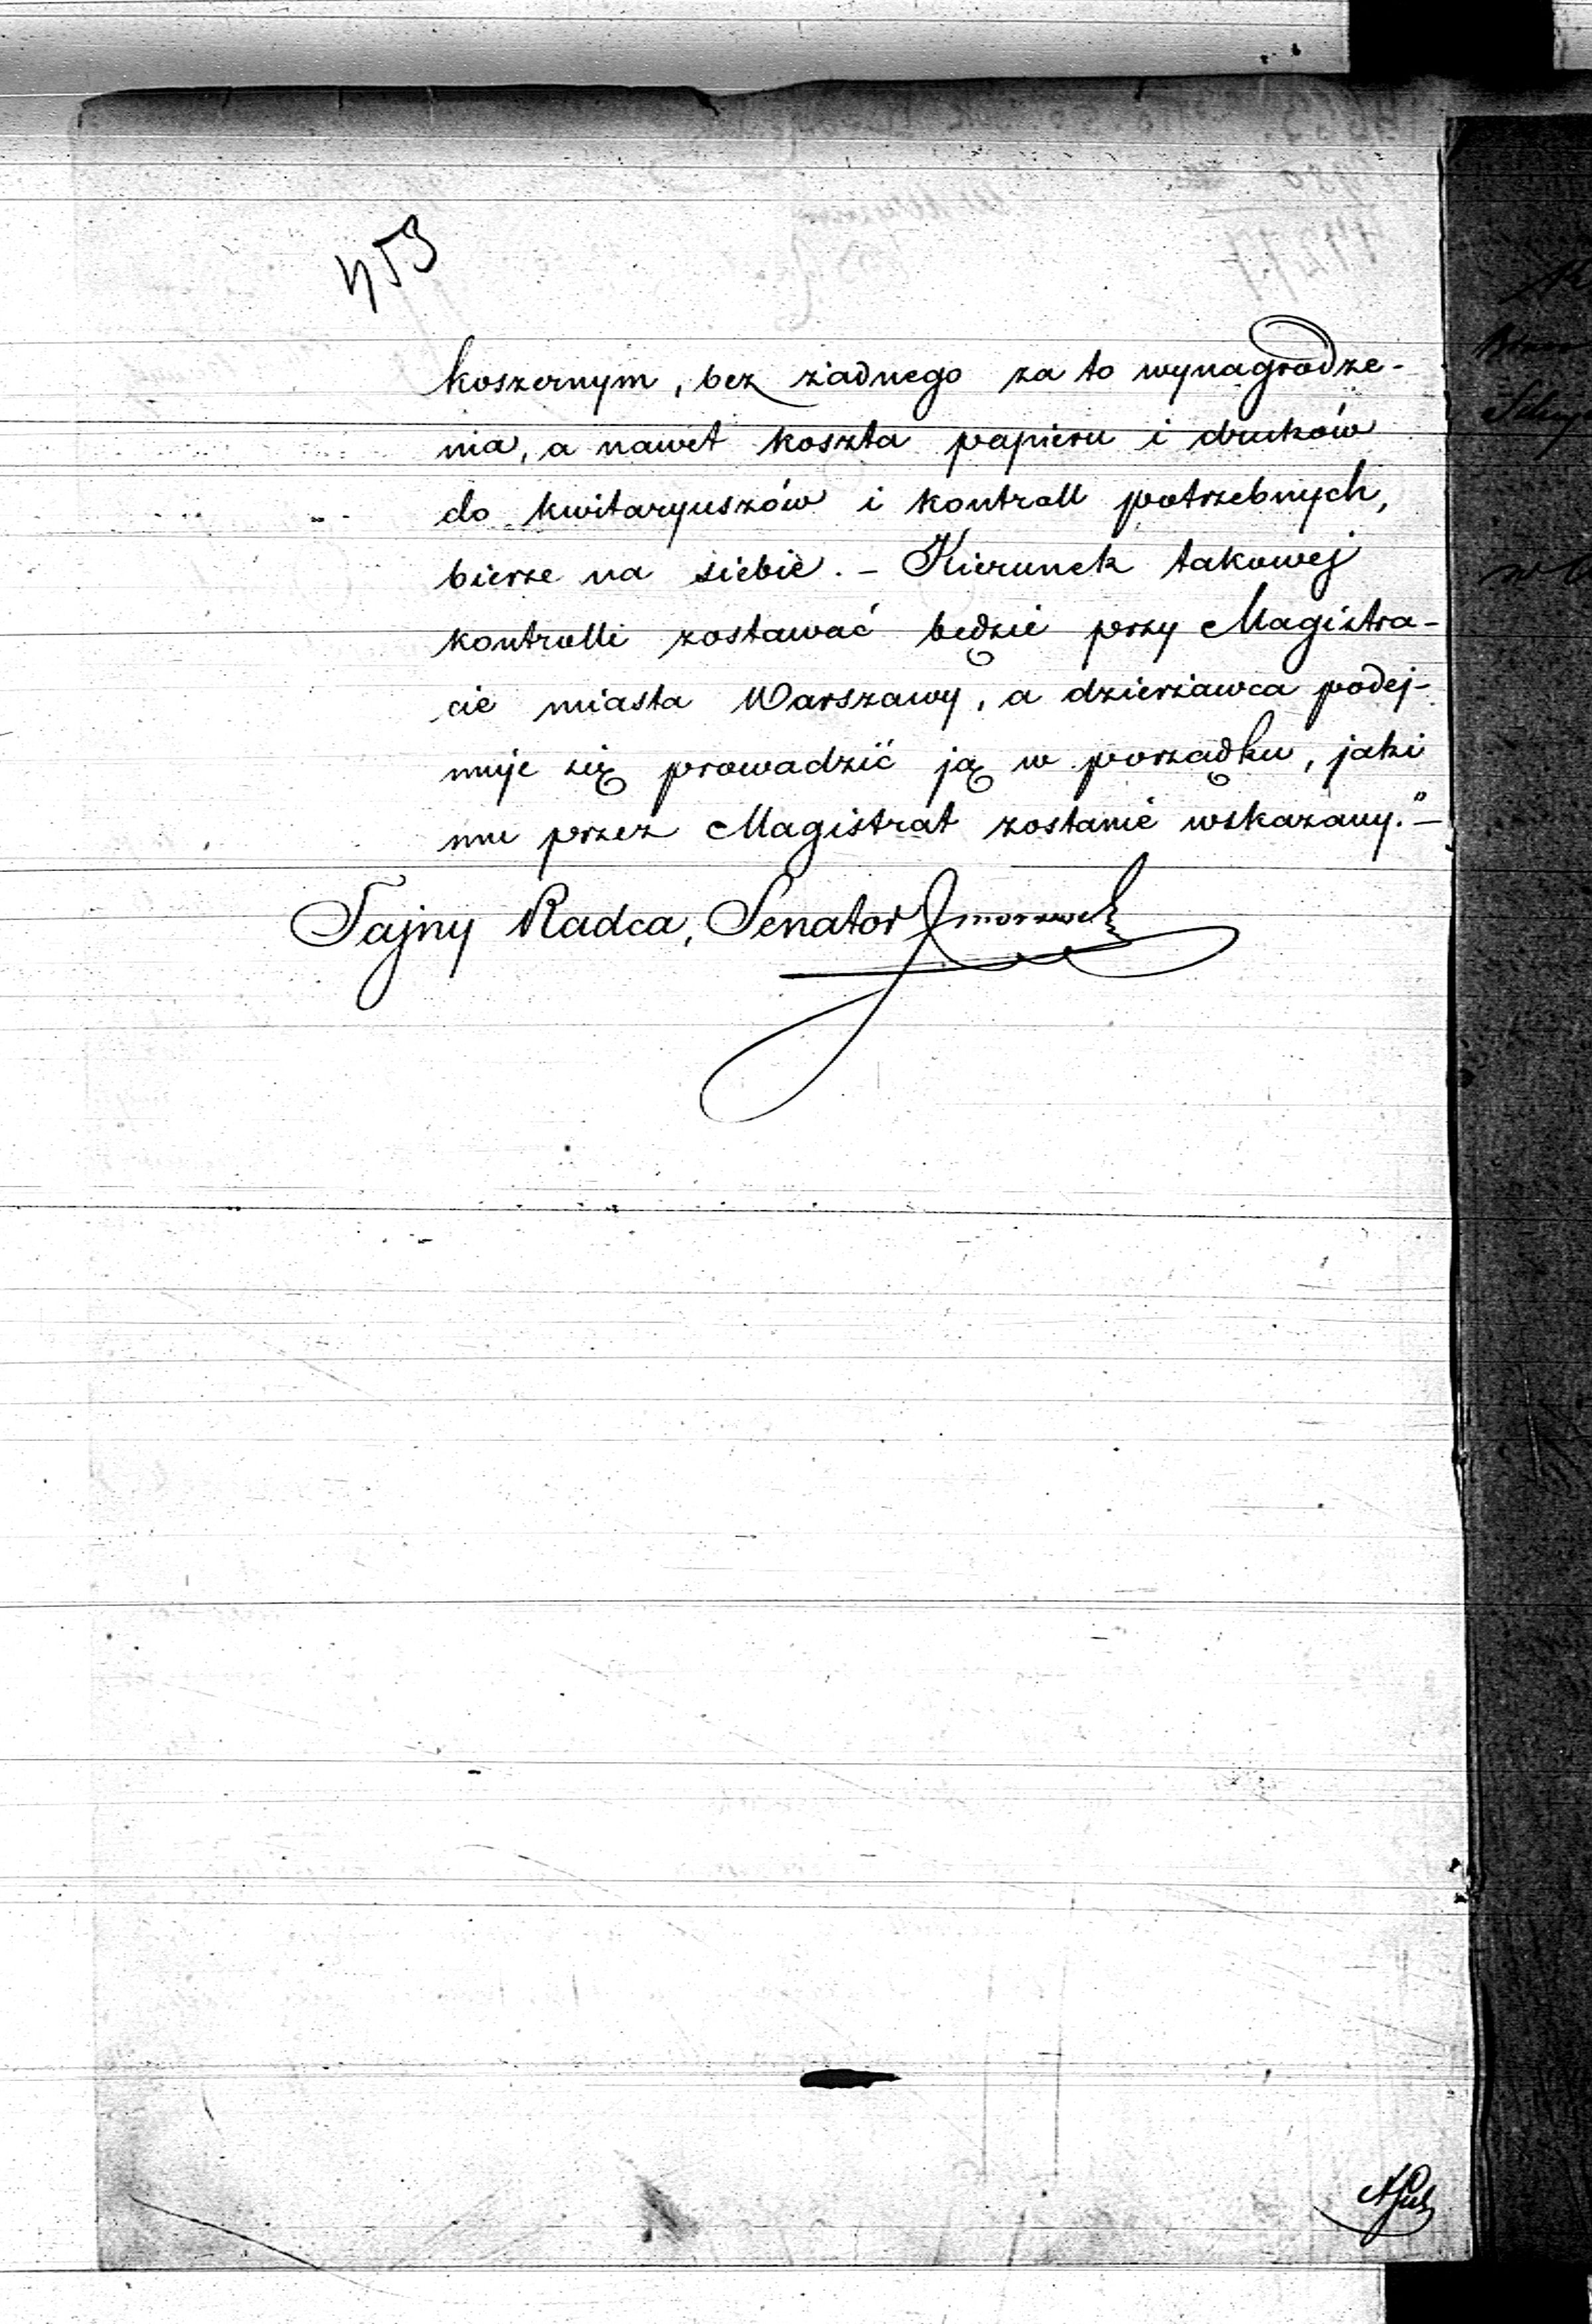 453
koszernym, bez żadnego za to wynagrodze-
nia, a nawet koszta papieru i druków
do kwitaryuszów i kontroll potrzebnych,
bierze na siebie. – Kierunek takowej
kontrolli zostawać będzie przy Magistra-
cie miasta Warszawy, a dzierżawca podej-
muje się prowadzić ją w porządku, jaki
mu przez Magistrat zostanie wskazany." –
Tajny Radca, Senator